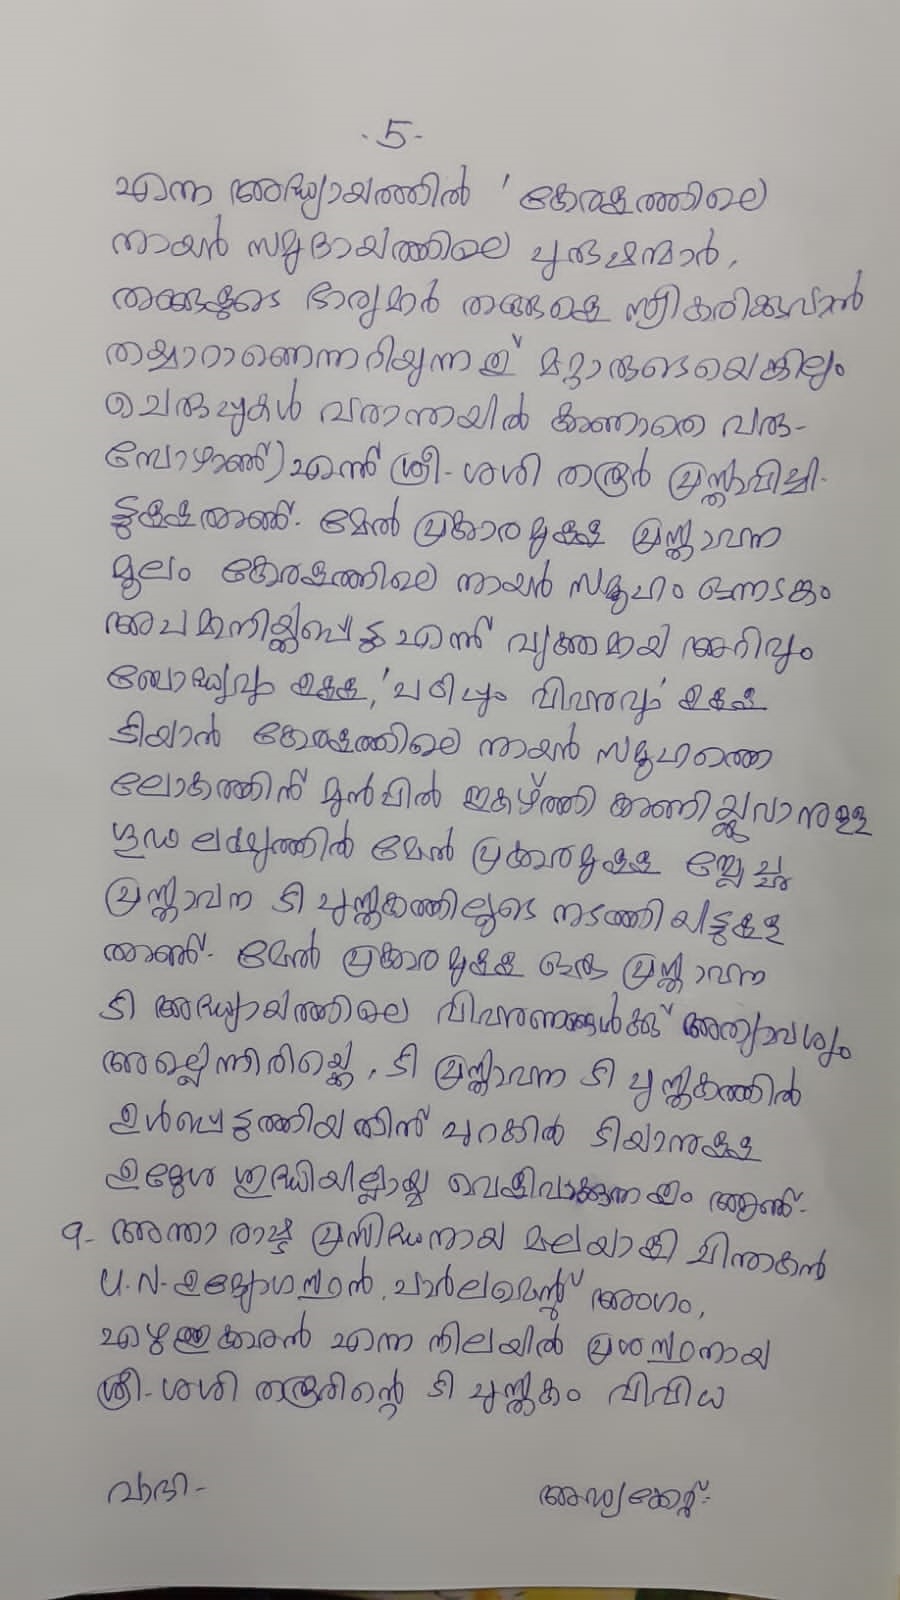 -5-
എന്ന അദ്ധ്യായത്തിൽ ' കേരളത്തിലെ
നായർ സമുദായത്തിലെ പുരുഷന്മാർ,
തങ്ങളുടെ ഭാര്യമാർ തങ്ങളെ സ്വീകരിക്കുവാൻ
തയ്യാറാണെന്നറിയുന്നത് മറ്റാരുടെയെങ്കിലും
ചെരുപ്പുകൾ വരാന്തയിൽ കാണാതെ വരു-
മ്പോഴാണ്) എന്ന് ശ്രീ. ശശി തരൂർ പ്രസ്താപിച്ചി-
ട്ടുള്ളതാണ്. മേൽ പ്രകാരമുള്ള പ്രസ്താവന
മൂലം കേരളത്തിലെ നായർ സമൂഹം ഒന്നടകം
അപമാനിയ്ക്കപ്പെട്ടു എന്ന് വ്യക്തമായ അറിവും
ബോദ്ധ്യവും ഉള്ള, 'പഠിപ്പും വിവരവും' ഉള്ള
ടിയാൻ കേരളത്തിലെ നായർ സമൂഹത്തെ
ലോകത്തിന് മുൻപിൽ ഇകഴ്ത്തി കാണിയ്ക്കുവാനുള്ള
ഗൂഢ ലക്ഷ്യത്തിൽ മേൽ പ്രകാരമുള്ള മ്ലേച്ഛ
പ്രസ്താവന ടി പുസ്തകത്തിലൂടെ നടത്തിയിട്ടുള്ള
താണ്. മേൽ പ്രകാരമുള്ള ഒരു പ്രസ്താവന
ടി അദ്ധ്യായത്തിലെ വിവരണങ്ങൾക്ക് അത്യാവശ്യം
അല്ലെന്നിരിയ്ക്കെ, ടി പ്രസ്താവന ടി പുസ്തകത്തിൽ
ഉൾപ്പെടുത്തിയതിന് പുറകിൽ ടിയാനുള്ള
ഉദ്ദേശ ശുദ്ധിയില്ലായ്മ വെളിവാക്കുന്നതും ആണ്.
9- അന്താരാഷ്ട്ര പ്രസിദ്ധനായ മലയാളി ചിന്തകൻ
U.N. ഉദ്യോഗസ്ഥൻ, പാർലമെന്റ് അംഗം,
എഴുത്തുകാരൻ എന്ന നിലയിൽ പ്രശസ്ഥനായ
ശ്രീ. ശശി തരൂരിന്റെ ടി പുസ്തകം വിവിധ
വാദി- അഡ്വക്കേറ്റ്: